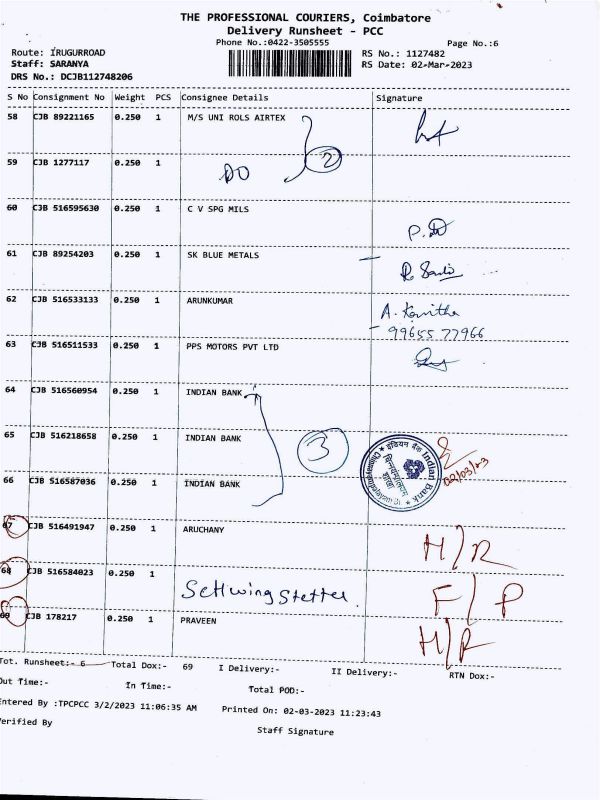 THE PROFESSIONAL COURIERS, Coimbatore
Delivery Runsheet - PCC
Phone No.:0422-3505555
Page No.:6
Route: IRUGURROAD
RS No.: 1127482
Staff: SARANYA
RS Date: 02-Mar-2023
DRS No.: DCJB112748206
S No Consignment No Weight PCS Consignee Details Signature
58 CJB 89221165 0.250 1 M/S UNI ROLS AIRTEX
2
59 CJB 1277117 0.250 1 DO
60 CJB 516595630 0.250 1 C V SPG MILS
61 CJB 89254203 0.250 1 SK BLUE METALS
62 CJB 516533133 0.250 1 ARUNKUMAR A. Kavitha
99655 77966
63 CJB 516511533 0.250 1 PPS MOTORS PVT LTD
64 CJB 516560954 0.250 1 INDIAN BANK
65 CJB 516218658 0.250 1 INDIAN BANK
3
इंडियन बैंक Indian Bank
02/03/23
66 CJB 516587036 0.250 1 INDIAN BANK
67 CJB 516491947 0.250 1 ARUCHANY H/R
68 CJB 516584023 0.250 1 F/P
69 CJB 178217 0.250 1 PRAVEEN H/R
Tot. Runsheet:- 6 Total Dox:- 69 I Delivery:- II Delivery:- RTN Dox:-
Out Time:- In Time:- Total POD:-
Entered By :TPCPCC 3/2/2023 11:06:35 AM Printed On: 02-03-2023 11:23:43
Verified By
Staff Signature